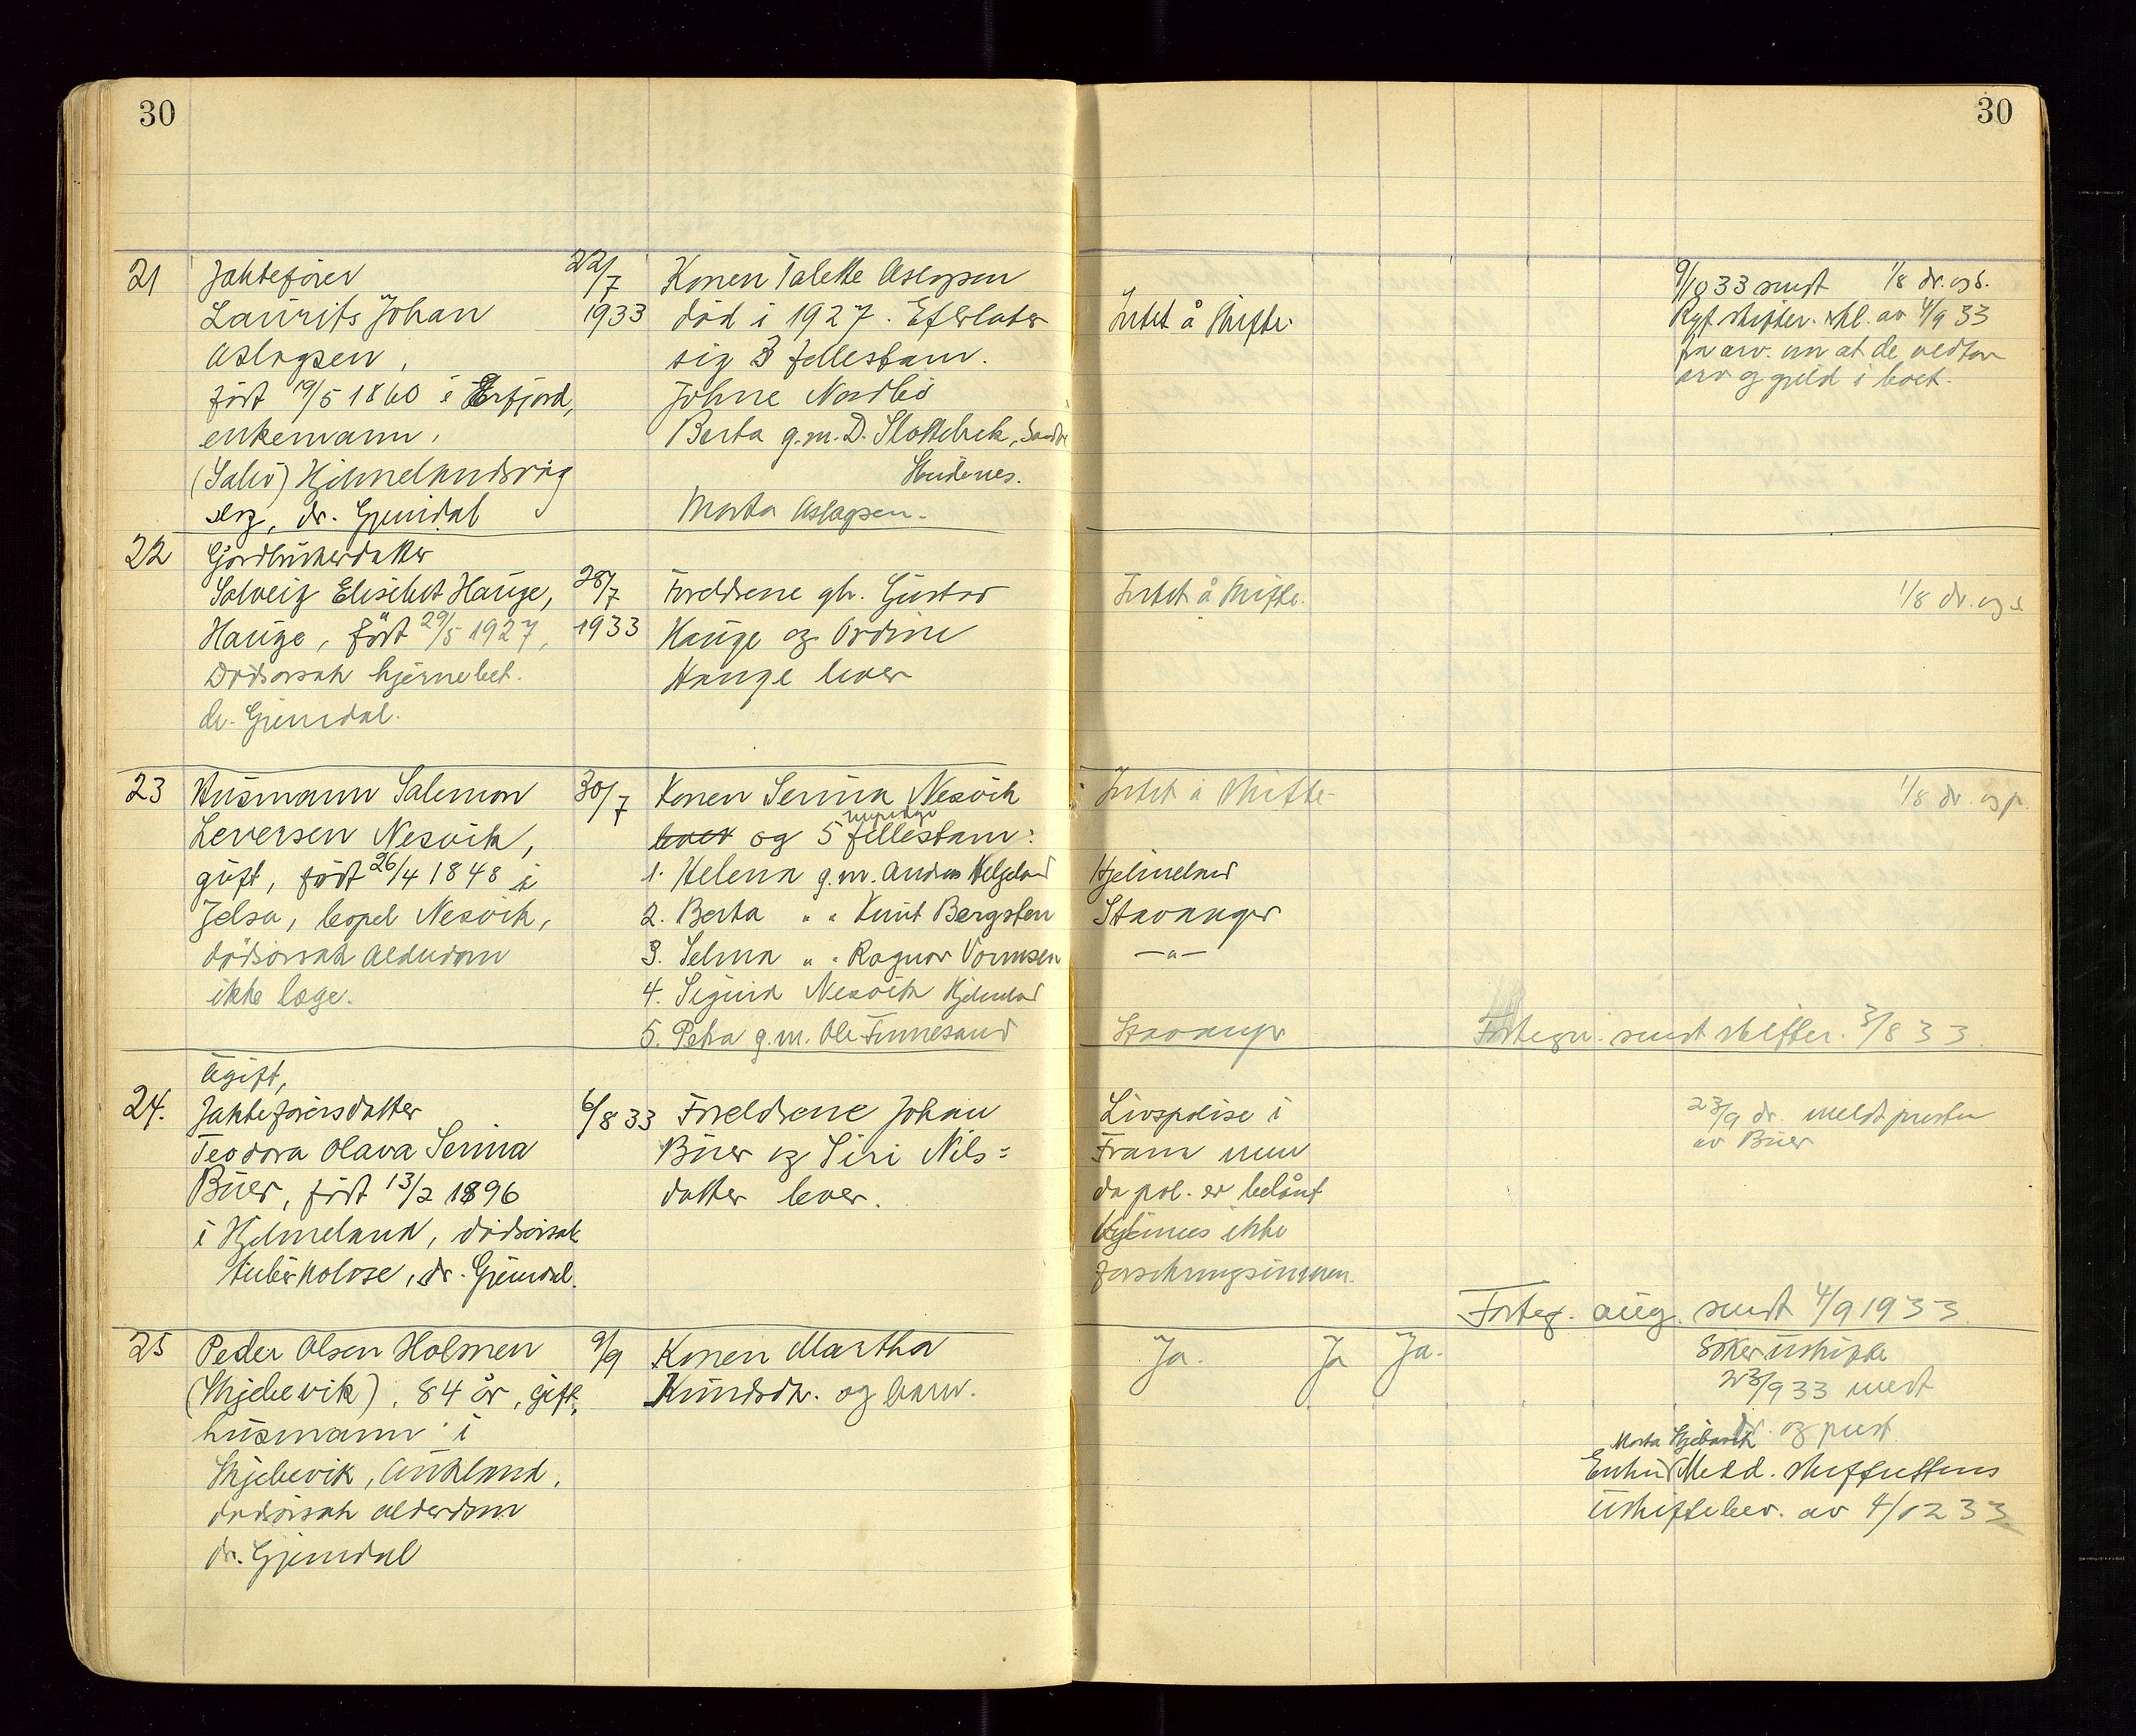 30
30
21
Jakteförer
Laurits Johan
Aslagsen,
föst 19/5 1860 i Erfjord,
enkemann,
(Sabö) Hjelmelandsvåg
, dr. Gjemdal
22/7
1933
Konen Talette Aslagsen
död i 1927. Efterlater
sig 3 fellesbarn.
Johne Nordbö
Berta g.m. D. Slottebrek,
Skudenes.
Marta Aslagsen.
Intet å skifte.
9/10 33 sendt 1/8 dr. og s.
skifter. skl. av 4/9 33
fra arv. om at de vedtar
arv og gjeld i boet.
22
Gårdbrukerdatter
Solveig Elisabet Hauge,
Hauge, föst 29/5 1927,
Dödsorsak hjernebet.
dr. Gjemdal.
28/7
1933
Foreldrene gbr. Gustav
Hauge og Ordine
Hauge lever
Intet å skifte.
1/8 dr. og s
23
Husmann Salemon
Leversen Nesvik,
gift, född 26/4 1848 i
Jelsa, bopel Nesvik,
dödsorsak alderdom
ikke læge.
30/7
Konen Serina Nesvik
lever og 5 myndige fellesbarn:
1. Helena g.m. Andreas Helgeland
2. Berta " " Knut Bergsten
3. Selma " " Ragnar Vormsen
4. Sigurd Nesvik Hjelmeland
5. Petra g.m. Ole Finnesand
Intet å skifte
Hjelmeland
Stavanger
— " —
Stavanger
1/8 dr. og p.
Fortegn. sendt skifter. 3/8 33.
24.
Ugift,
Jakteförersdatter
Teodora Olava Serina
Büer, föst 13/2 1896
i Hjelmeland, dödsorsak
tuberkolose, dr. Gjemdal.
6/8 33
Foreldrene Johan
Büer og Siri Nils=
datter lever.
Livspolise i
Fram men
da pol. er belånt
kjennes ikke
forsikringsummen.
23/9 dr. meldt presten
av Büer
Forteg. aug. sendt 4/9 1933
25
Peder Olsen Holmen
(Skjebevik), 84 år, gift,
husmann i
Skjebevik, Aukland,
dödsorsak alderdom
dr. Gjemdal
9/9
Konen Martha
Knudsdtr. og barn.
Ja.
Ja
Ja.
Söker uskifte
23/9 33 medt
dr. og prest
Marta Skjebevik
Enke Medd. skifterettens
uskiftebev. av 4/12 33